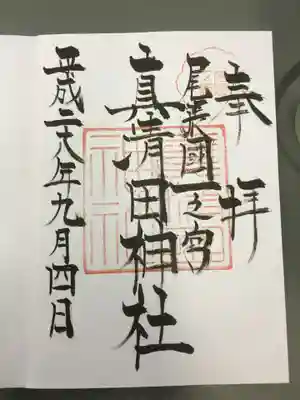 奉拝
尾張國一之宮
真清田神社
平成二十八年九月四日